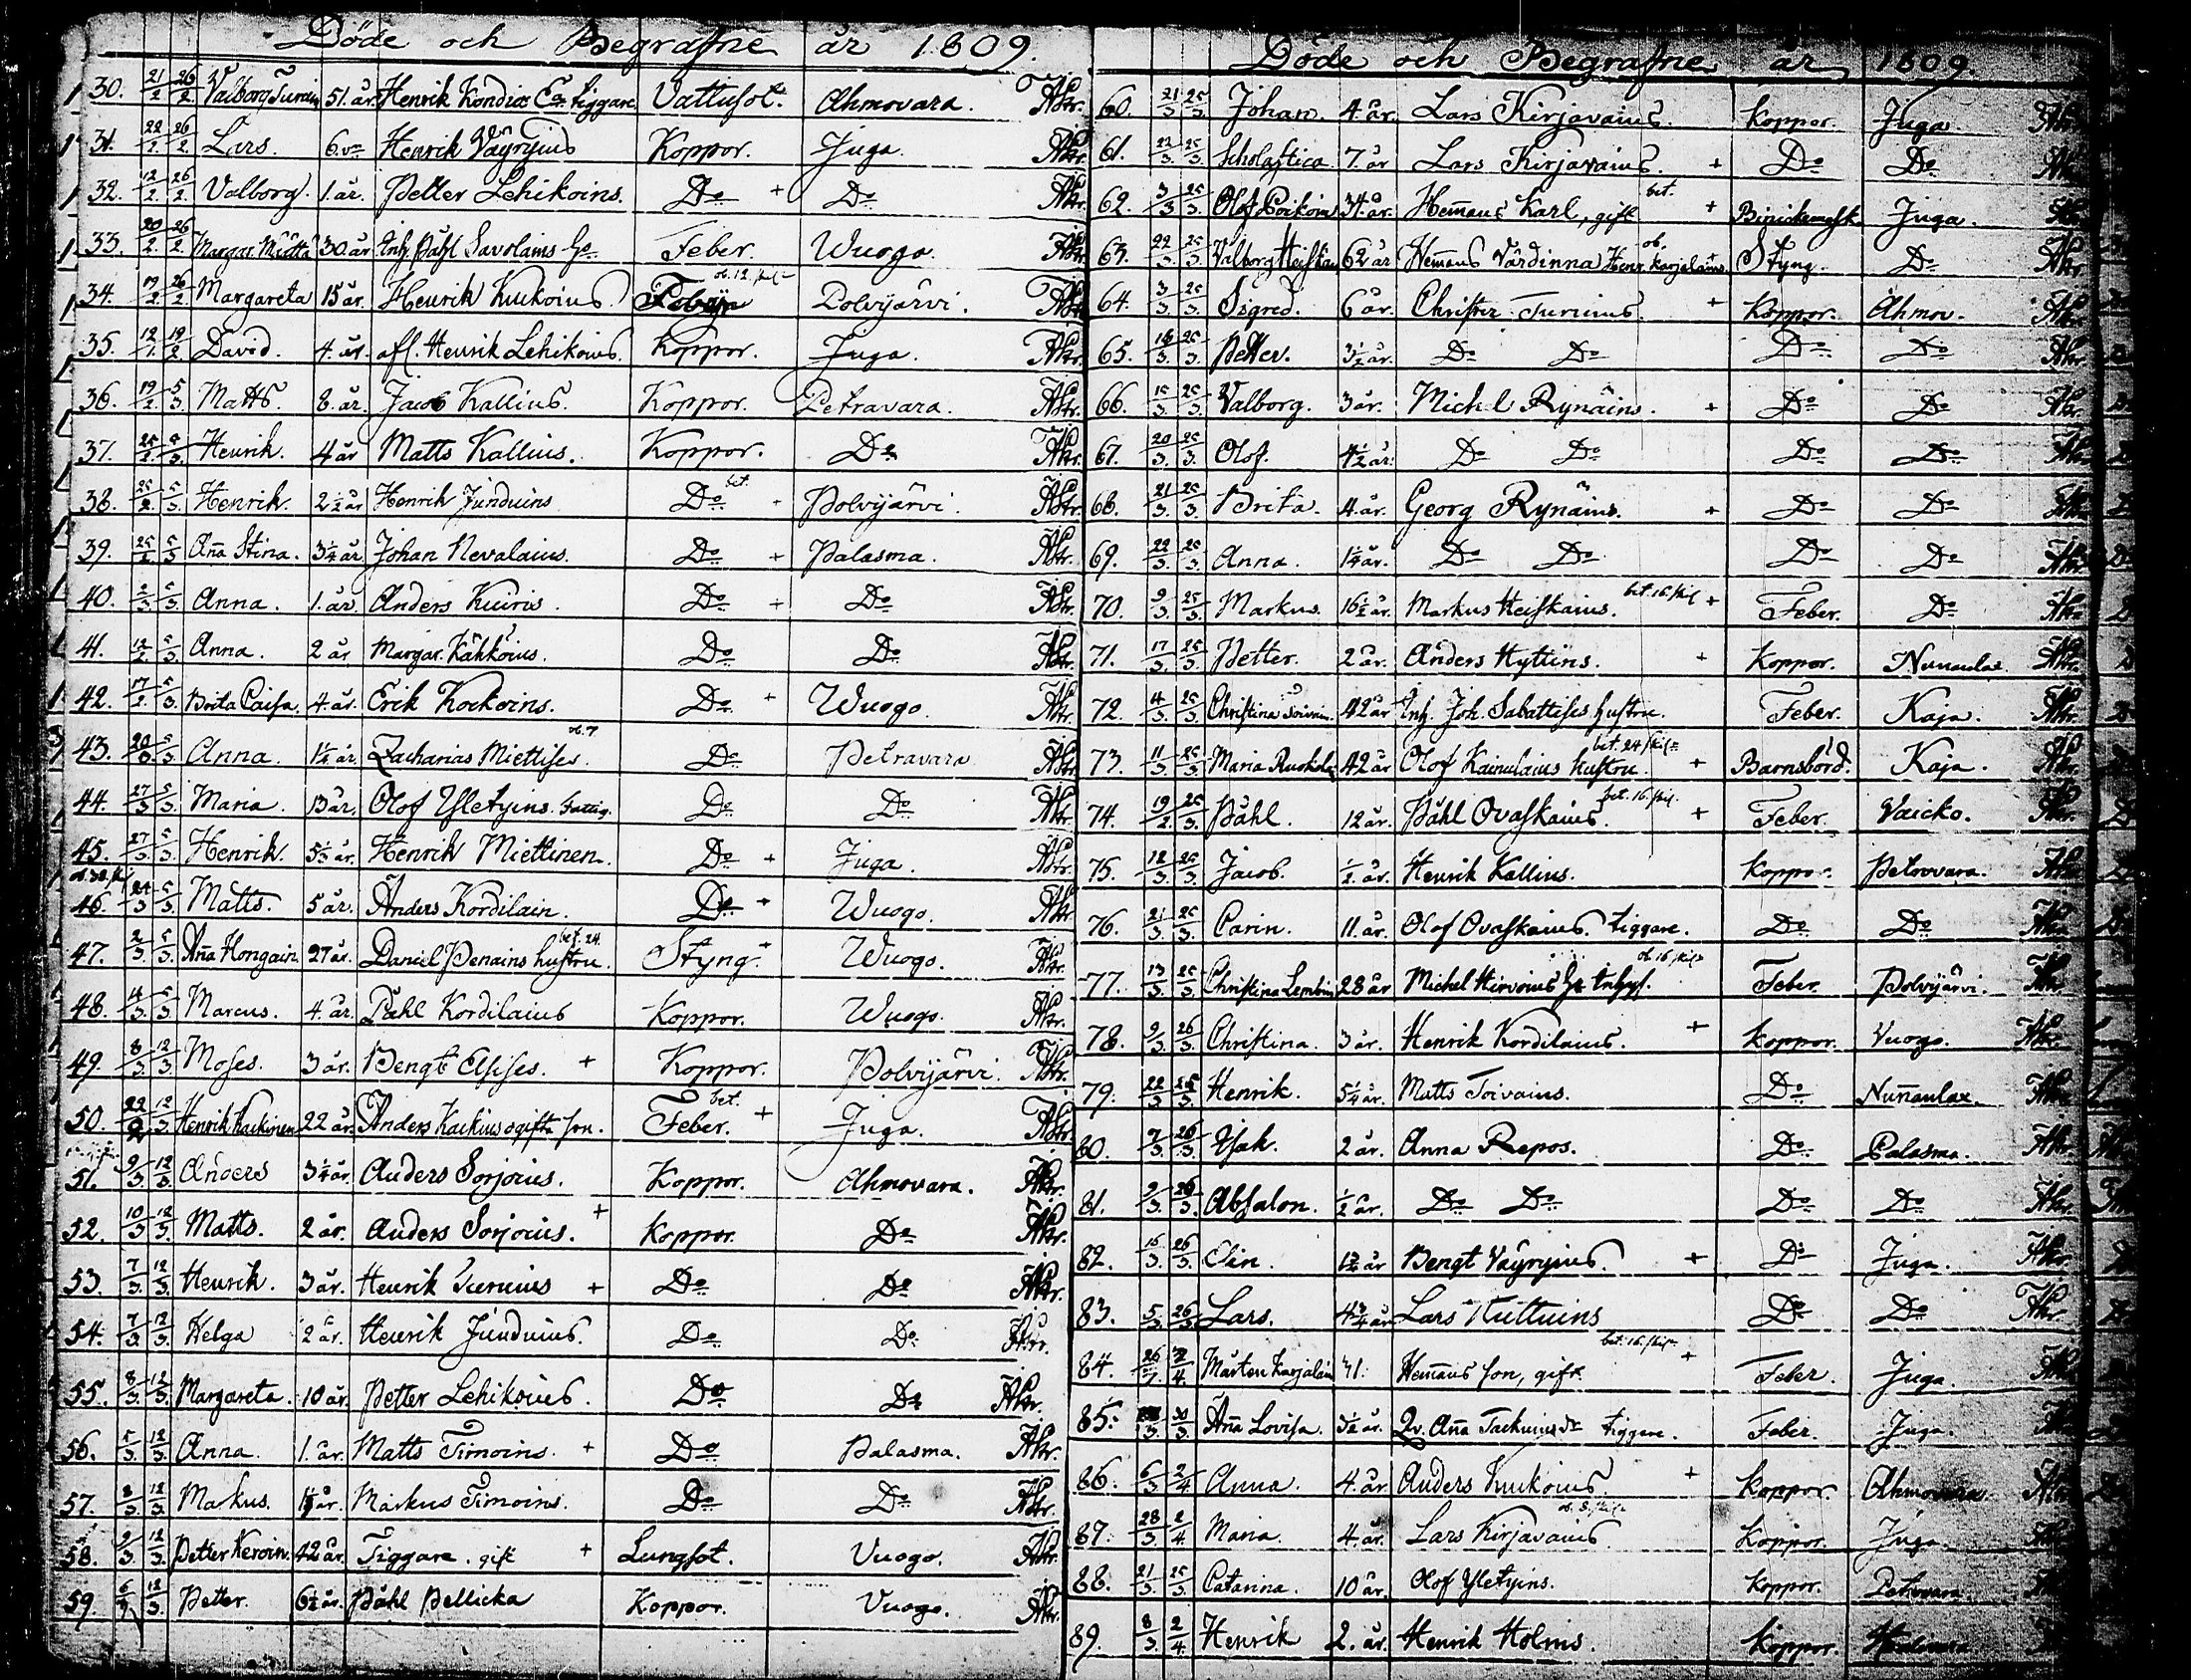 Döde och Begrafne år 1809.
30. 21/2 26/2 Valborg Turain 51. år. Henrik Kondias Ea. tiggare Vattusot. Ahmovara.
31. 22/2 26/2 Lars. 6. Henrik Väyryins Koppor. Juga.
32. 12/2 26/2 Valborg. 1. år. Petter Lehikoins. Do + Do
33. 20/2 26/2 Margar. Määttä 30. år Inh. Påhl Savolains Feber. Wuogo.
34. 19/2 26/2 Margareta 15 år. Henrik Kuikoins. Polvijärvi.
35. 12/1 19/2 David. 4. år. afl. Henrik Lehikoins. Koppor. Juga.
36. 19/2 5/3 Matts. 8. år. Jacob Kallius. Koppor. Petravara.
37. 25/2 Henrik. 4 år Matts Kallius. Koppor. Do
38. 25/2 5/3 Henrik. 2½ år Henrik Junduins Do bet. Polvijärvi.
39. 25/2 5/3 Aña Stina. 3¼ år Johan Nevalaius. Do + Palasma.
40. 2/3 5/3 Anna. 1. år. Anders Kuiris. Do + Do
41. 12/2 5/3 Anna. 2 år Margar. Kähköins. Do Do
42. 17/2 5/3 Brita Caisa. 4. år. Erik Kockoins. Do + Wuogo.
43. 5/3 Anna. 1¼ år. Zacharias Miettises. Do Petravara
44. 27/3 5/3 Maria. 13 år. Olof Yletyins. fattig. Do Do
45. 27/3 5/3 Henrik. 5⅓ år. Henrik Miettinen. Do + Juga.
46. 24/3 5/3 Matts. 5 år. Anders Kordilain. Do + Wuogo.
47. 2/3 5/3 Aña Hongain 27 år. Daniel Penains hustru. bet. 24. Styng. + Wuogo.
48. 4/3 5/3 Marcus. 4. år. Påhl Kordilaius Koppor. Wuogo.
49. 8/3 12/3 Moses. 3 år. Bengt Elsises. + Koppor. Polvijärvi.
50. 12/3 Henrik Kackinen 22 år. Anders Kackius ogifta son. Feber. bet. + Juga.
51. 9/3 12/3 Anders 3¼ år. Anders Sorjoius. Koppor. Ahmovara.
52. 10/3 12/3 Matts. 2 år. Anders Sorjoius. + Koppor. Do
53. 7/3 12/3 Henrik. 3 år. Henrik Turuius + Do Do
54. 7/3 12/3 Helga 2 år. Henrik Junduius. Do Do
55. 8/3 12/3 Margareta. 10 år. Petter Lehikoius. Do Do
56. 5/3 12/3 Anna. 1. år Matts Timoins. + Do Palasma.
57. 8/3 12/3 Markus. år. Markus Timoins. Do Do
58. 9/3 12/3 Petter Keroin. 42 år. Tiggare. gift + Lungsot. Vuogo.
59. 12/3 Petter. 6½ år. Påhl Pellicka Koppor. Vuogo.
Döde och Begrafne år 1809.
60. 21/3 25/3 Johan. 4. år. Lars Kirjavaius. Koppor. Juga.
61. 22/3 25/3 Scholastica 7. år Lars Kirjavaius. + Do Do
62. 3/3 25/3 Olof 34. år. Hem̄ans Karl, gift bet. + Juga.
63. 22/3 25/3 Valborg Heiskan 62 år Hem̄ans Värdinna Henr. Karjalains. Styng. Do
64. 3/3 25/3 Sigred. 6 år. Christer Turuius. + Koppor. Ahmov.
65. 16/3 25/3 Petter. 3½ år. Do Do Do Do
66. 15/3 25/3 Valborg. 3 år. Michel Rynäins. + Do Do
67. 20/3 25/3 Olof. 1½ år. Do Do Do Do
68. 21/3 25/3 Brita. 4. år. Georg Rynäins. + Do Do
69. 22/3 25/3 Anna. 1¼ år. Do Do Do Do
70. 9/3 25/3 Markus. 16½ år. Markus Heiskaius. bet. 16. skil + Feber. Do
71. 17/3 25/3 Petter. 2 år. Anders Hyttins. + Koppor. Nunaulax
72. 4/3 25/3 Christina Soivain. 42 år Inh. Joh. Sabattises hustru. Feber. Kaja.
73. 11/3 25/3 Maria Ruokolai 42 år Olof Kainulaius hustru. bet. 24 skil. + Barnsbörd. Kaja.
74. 19/2 25/3 Påhl. 12 år. Påhl Ovaskaius. bet. 16. skil. + Feber. Vaicko.
75. 12/3 25/3 Jacob. ½ år. Henrik Kallius. Koppor. Petovvara.
76. 21/3 25/3 Carin. 11. år. Olof Ovaskaius. tiggare. Do Do
77. 13/3 25/3 Christina Lembin 28 år Michel Hirvoius inhys. Feber. Polvijärvi.
78. 9/3 26/3 Christina. 3 år. Henrik Kordilaius. + Koppor. Vuogo.
79. 22/3 25/3 Henrik. 5¼ år. Matts Toivains. Do Nuñaulax.
80. 7/3 26/3 Isak. 2 år. Anna Repos. Do Palasma.
81. 9/3 26/3 Absalon. ½ år. Do Do Do Do
82. 15/3 26/3 Elin. år Bengt Väyryius. + Do Juga.
83. 5/3 26/3 Lars. 4¾ år Lars Kuttuins Do Do
84. Mårten Karjalain 41. Hem̄ans son, gift. bet. 16. skil. + Feber. Juga.
85. 30/3 Aña Lovisa. 3½ år. Qv. Aña Tackuins dr tiggare. Feber. Juga.
86. 6/3 2/4 Anna. 4. år Anders Kuikoius + Koppor. Ahmovara.
87. 28/3 2/4 Maria. 4. år. Lars Kirjavaius. Koppor. Juga
88. 21/3 25/3 Catarina. 10 år. Olof Yletyins. Koppor. Petravara.
89. 8/3 2/4 Henrik 2. år. Henrik Holms. Koppor.